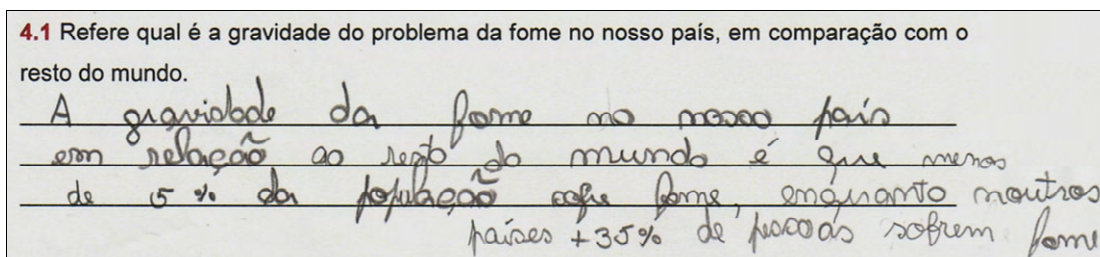 4.1 Refere qual é a gravidade do problema da fome no nosso país, em comparação com o
resto do mundo.
A gravidade da fome no nosso país
em relação ao resto do mundo é que menos
de 5 % da população sofre fome, enquanto noutros
países +35% de pessoas sofrem fome